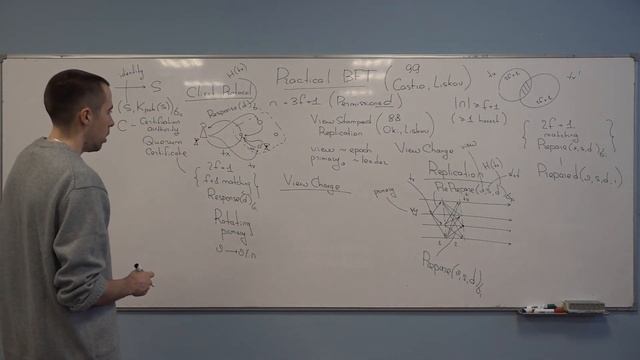 identity
S
C - Certification
authority
Quorum
Certificate
Client Protocol
H(tx)
Response(d)
tx
2f+1
f+1 matching
Response(d)
Rotating
primary
Practical BFT (99 Castro, Liskov)
n = 3f+1 (Permissioned)
View Stamped (88
Replication Oki, Liskov)
view ~ epoch
primary ~ leader
View Change
View Change
Replication
view
H(tx)
PrePrepare(v,s,d)
primary
1 2
Prepare(v,s,d)
|n| ≥ f+1
(≥ 1 honest)
2f+1
2f+1
2f+1
matching
Prepare(v,s,d)
Prepared(d,s,v,i)